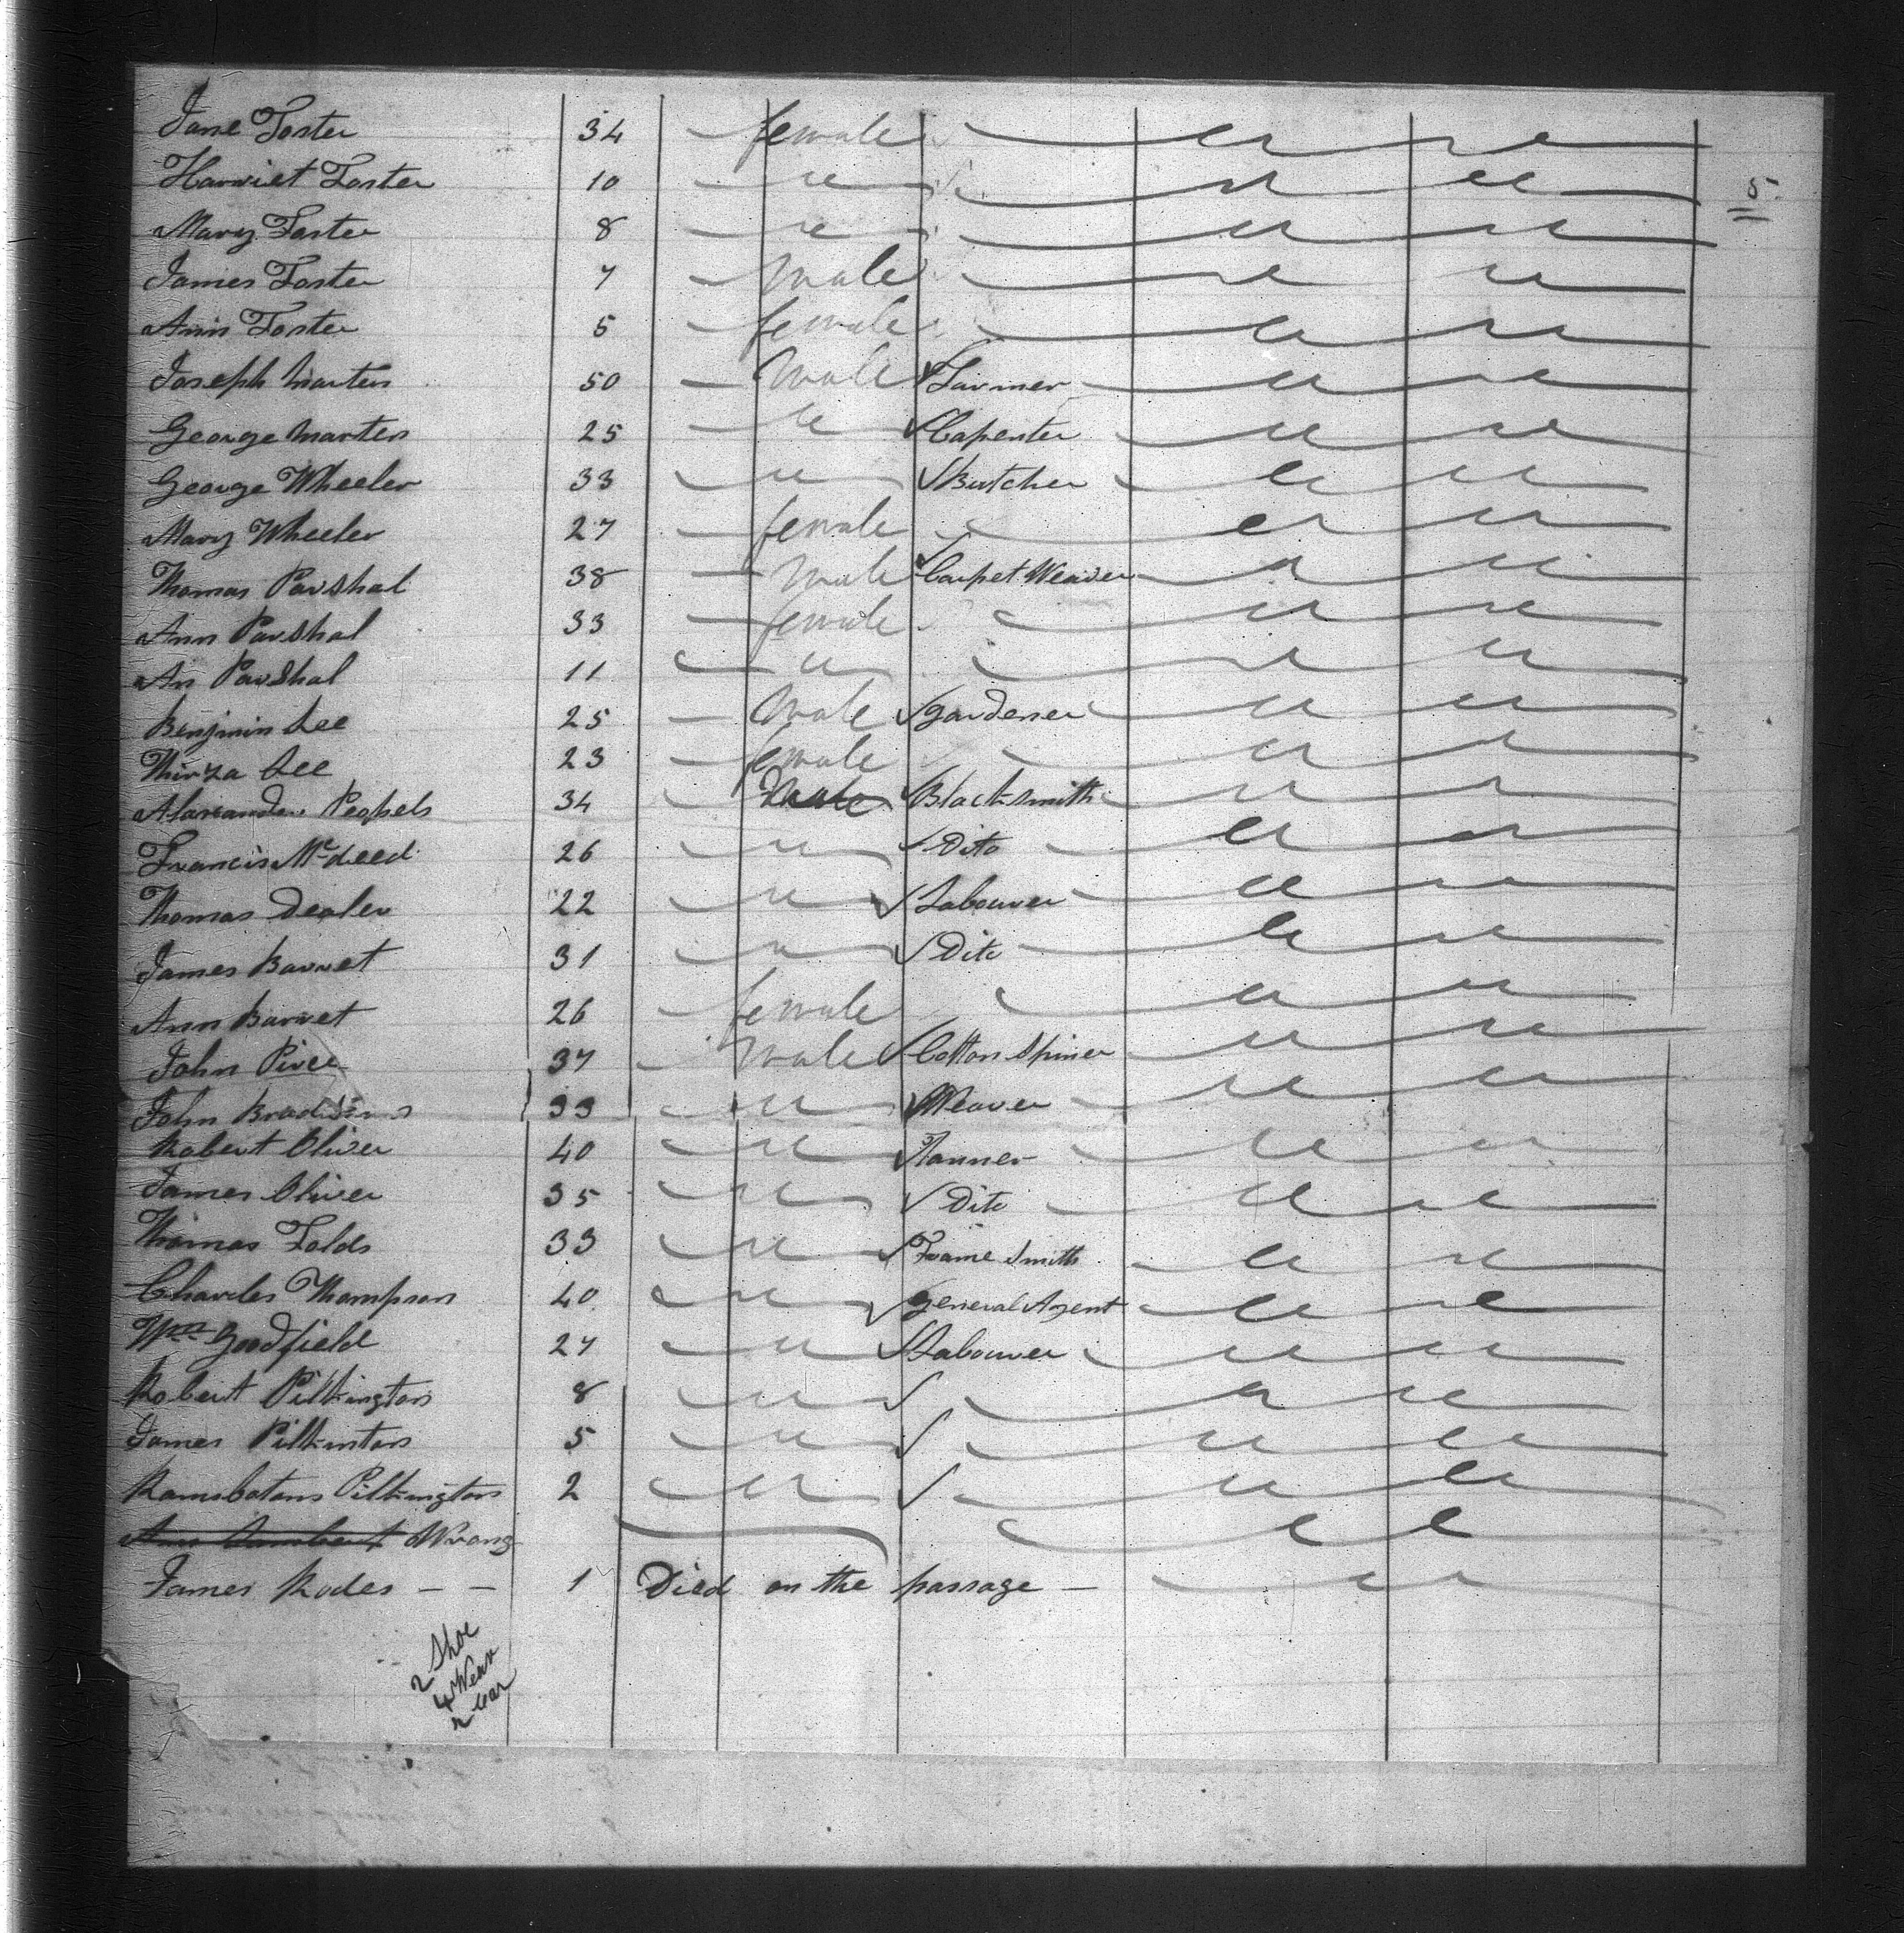 Jane Foster 34 — female — " "
Harriet Foster 10 — " — " " 5.
Mary Foster 8 — " — " "
James Foster 7 — male — " "
Ann Foster 5 — female — " "
Joseph Marten 50 — Male ✓ Farmer — " "
George Marten 25 — " ✓ Capenter — " "
George Wheeler 33 — " ✓ Butcher — " "
Mary Wheeler 27 — female — " "
Thomas Parshal 38 — Male ✓ Carpet Weaver — " "
Ann Parshal 33 — female — " "
An Parshal 11 — " — " "
Benjimin Lee 25 — Male ✓ Gardener — " "
Thirza Lee 23 — female — " "
Alaxander Peopels 34 — Male ✓ Blacksmith — " "
Francis McDeed 26 — " ✓ Dito — " "
Thomas Dealer 22 — " ✓ Labourer — " "
James Barret 31 — " ✓ Dito — " "
Ann Barret 26 — female — " "
John 37 — Male ✓ Cotton Spiner — " "
John 33 — " ✓ Weaver — " "
Robert Oliver 40 — " ✓ Tanner — " "
James Oliver 35 — " ✓ Dito — " "
Thomas Folds 33 — " ✓ Frame Smith — " "
Charles Thompson 40 — " ✓ General Agent — " "
Wm Goodfield 27 — " ✓ Labourer — " "
Robert Pilkington 8 — " ✓ — " "
James Pilkinton 5 — " ✓ — " "
Ramsbotom Pilkington 2 — " ✓ — " "
Wrong — " "
James Rodes — — 1 Died on the passage — " "
2 Shoe
4 Weav
2 Car